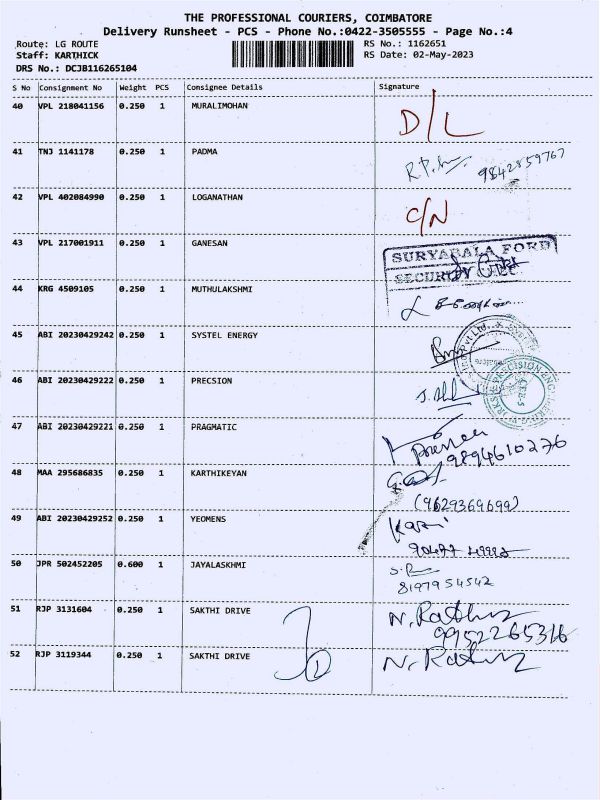 THE PROFESSIONAL COURIERS, COIMBATORE
Delivery Runsheet - PCS - Phone No.:0422-3505555 - Page No.:4
Route: LG ROUTE RS No.: 1162651
Staff: KARTHICK RS Date: 02-May-2023
DRS No.: DCJB116265104
S No Consignment No Weight PCS Consignee Details Signature
40 VPL 218041156 0.250 1 MURALIMOHAN D/L
41 TNJ 1141178 0.250 1 PADMA 9842859767
42 VPL 402084990 0.250 1 LOGANATHAN C/N
43 VPL 217001911 0.250 1 GANESAN SURYABALA FORD
SECURITY
44 KRG 4509105 0.250 1 MUTHULAKSHMI
45 ABI 20230429242 0.250 1 SYSTEL ENERGY
46 ABI 20230429222 0.250 1 PRECSION
47 ABI 20230429221 0.250 1 PRAGMATIC
9894610276
48 MAA 295686835 0.250 1 KARTHIKEYAN
(9629369699)
49 ABI 20230429252 0.250 1 YEOMENS
50 JPR 502452205 0.600 1 JAYALASKHMI
8197954542
51 RJP 3131604 0.250 1 SAKTHI DRIVE N. Rathna
9952265316
52 RJP 3119344 0.250 1 SAKTHI DRIVE